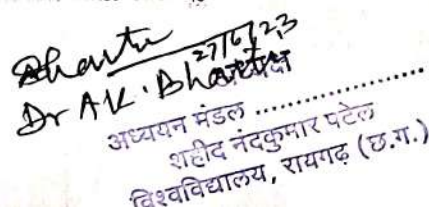 Bhartu
27/6/23
Dr A.K. Bhartu
अध्यक्ष
अध्ययन मंडल ......................
शहीद नंदकुमार पटेल
विश्वविद्यालय, रायगढ़ (छ.ग.)